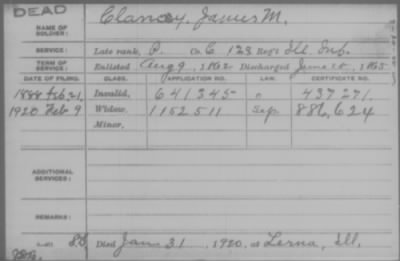 DEAD
NAME OF SOLDIER: Clancey, James M.
SERVICE: Late rank, P. Co. C 123 Reg't Ill. Inf.
TERM OF SERVICE: Enlisted Aug 9, 1862 Discharged June 1865
DATE OF FILING. CLASS. APPLICATION NO. LAW. CERTIFICATE NO.
1888 Feb. 21. Invalid, 641345 437271.
1920 Feb 9 Widow, 1152511 Sep. 886,624
Minor,
ADDITIONAL SERVICES:
REMARKS:
Died Jan. 31, 1920, at Lerna, Ill.